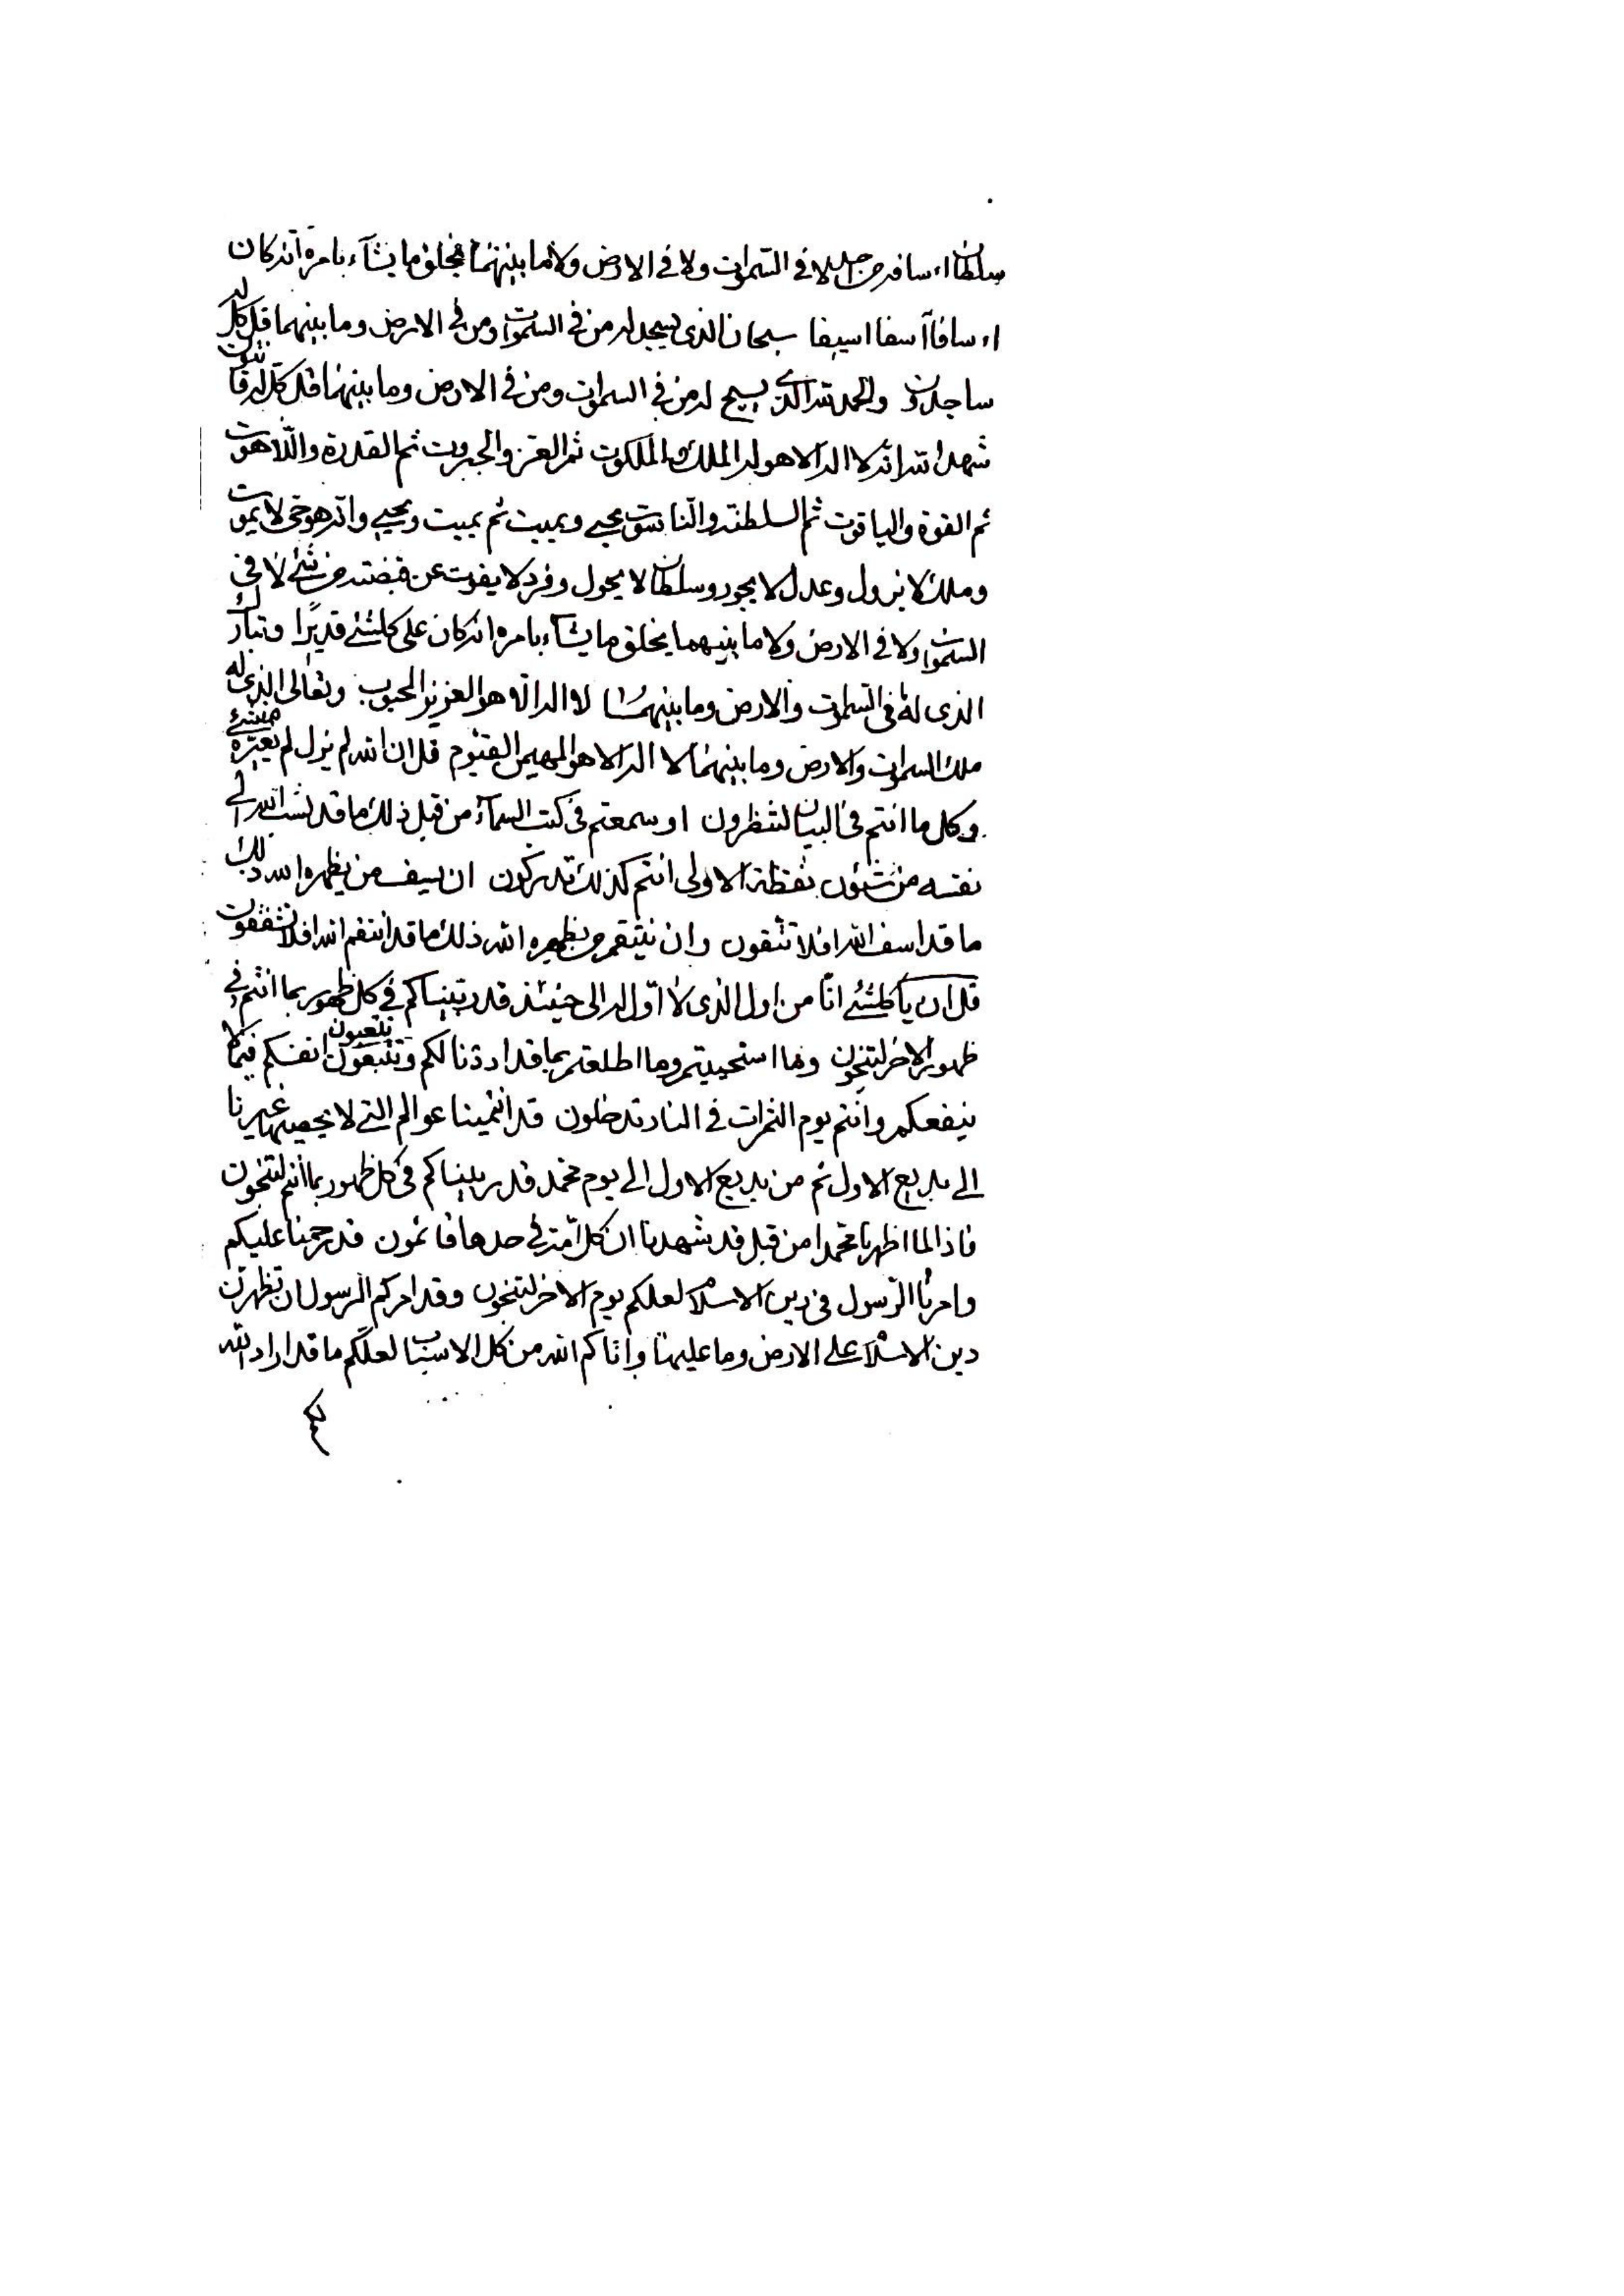 سلطان اءسافه من احد لا فى السموات ولا فى الارض ولا ما بينهما يخلق ما يشآء بامره انه كان
اءسافاً آسفا اسيفا سبحان الذى يسجد له من فى السموات ومن فى الارض وما بينهما قل كل له
ساجدون والحمد لله الذى يسبح له من فى السموات ومن فى الارض وما بينهما قل كل له قانتون
شهد الله انه لا اله الا هو له الملك والملكوت ثم العز والجبروت ثم القدرة واللاهوت
ثم القوة والياقوت ثم السلطنة والناسوت يحيى ويميت ثم يميت ويحيى وانه هو حى لا يموت
وملك لا يزول وعدل لا يجور وسلطان لا يحول وفرد لا يفوت عن قبضته من شئ لا فى
السموات ولا فى الارض ولا ما بينهما يخلق ما يشآء بامره انه كان على كلشئ قديرًا وتبارك
الذى له ما فى السموات والارض وما بينهما لا اله الا هو العزيز المحبوب وتعالى الذى له
ملك السموات والارض وما بينهما لا اله الا هو المهيمن القيوم قل ان الله لم يزل لم يغيره من شئ
وكل ما انتم فى البيان لتنظرون او سمعتم فى كتب السمآء من قبل ذلك ما قد نسب الله الى
نفسه من شئون نقطة الاولى انتم كذلك تدركون ان يسف من يظهره الله ذلك
ما قد اسف الله افلا تتقون وان ينتقم من يظهره الله ذلك ما قد انتقم الله افلا تشفقون
قل ان يا كلشئ انا من اول الذى لا اول له الى حينئذ قد ربيناكم فى كل ظهور بما انتم فى
ظهور الاخر لتنجون وما استحييتم وما اطلعتم بما قد اردنا لكم وتتبعون تتعبون انفسكم فيما لا
ينفعكم وانتم يوم الثمرات فى النار تدخلون قد انميناعوالم التى لا يحصيها غيرنا
الى بديع الاول ثم من بديع الاول الى يوم محمد قد ربيناكم فى كل ظهور بما انتم لتنجون
فاذا لما اظهرنا محمدا من قبل قد شهدنا ان كل امة فى حدها قائمون قد رحمنا عليكم
وامرنا الرسول فى دين الاسلام لعلكم يوم الاخر لتنجون وقد امركم الرسول ان تظهرن
دين الاسلام على الارض وما عليها واتاكم الله من كل الاسباب لعلكم ما قد اراد الله
لكم